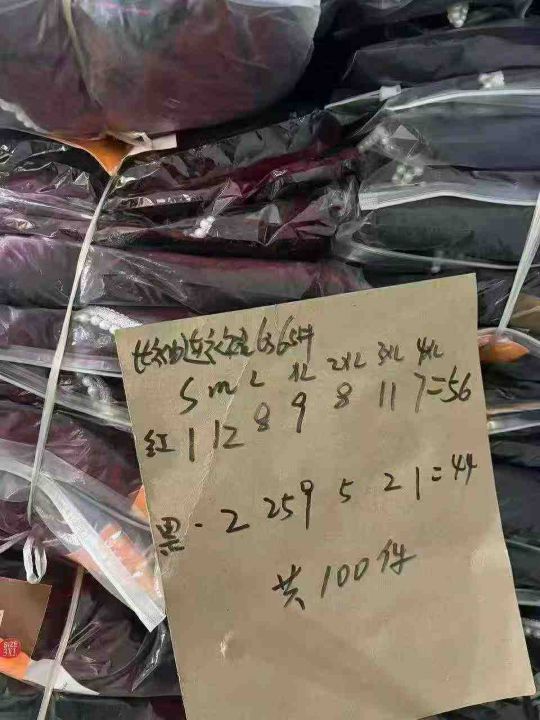 长袖连衣裙 6365#
S M L XL 2XL 3XL 4XL
红 1 12 8 9 8 11 7=56
黑 - 2 25 9 5 2 1=44
共100件
SIZE